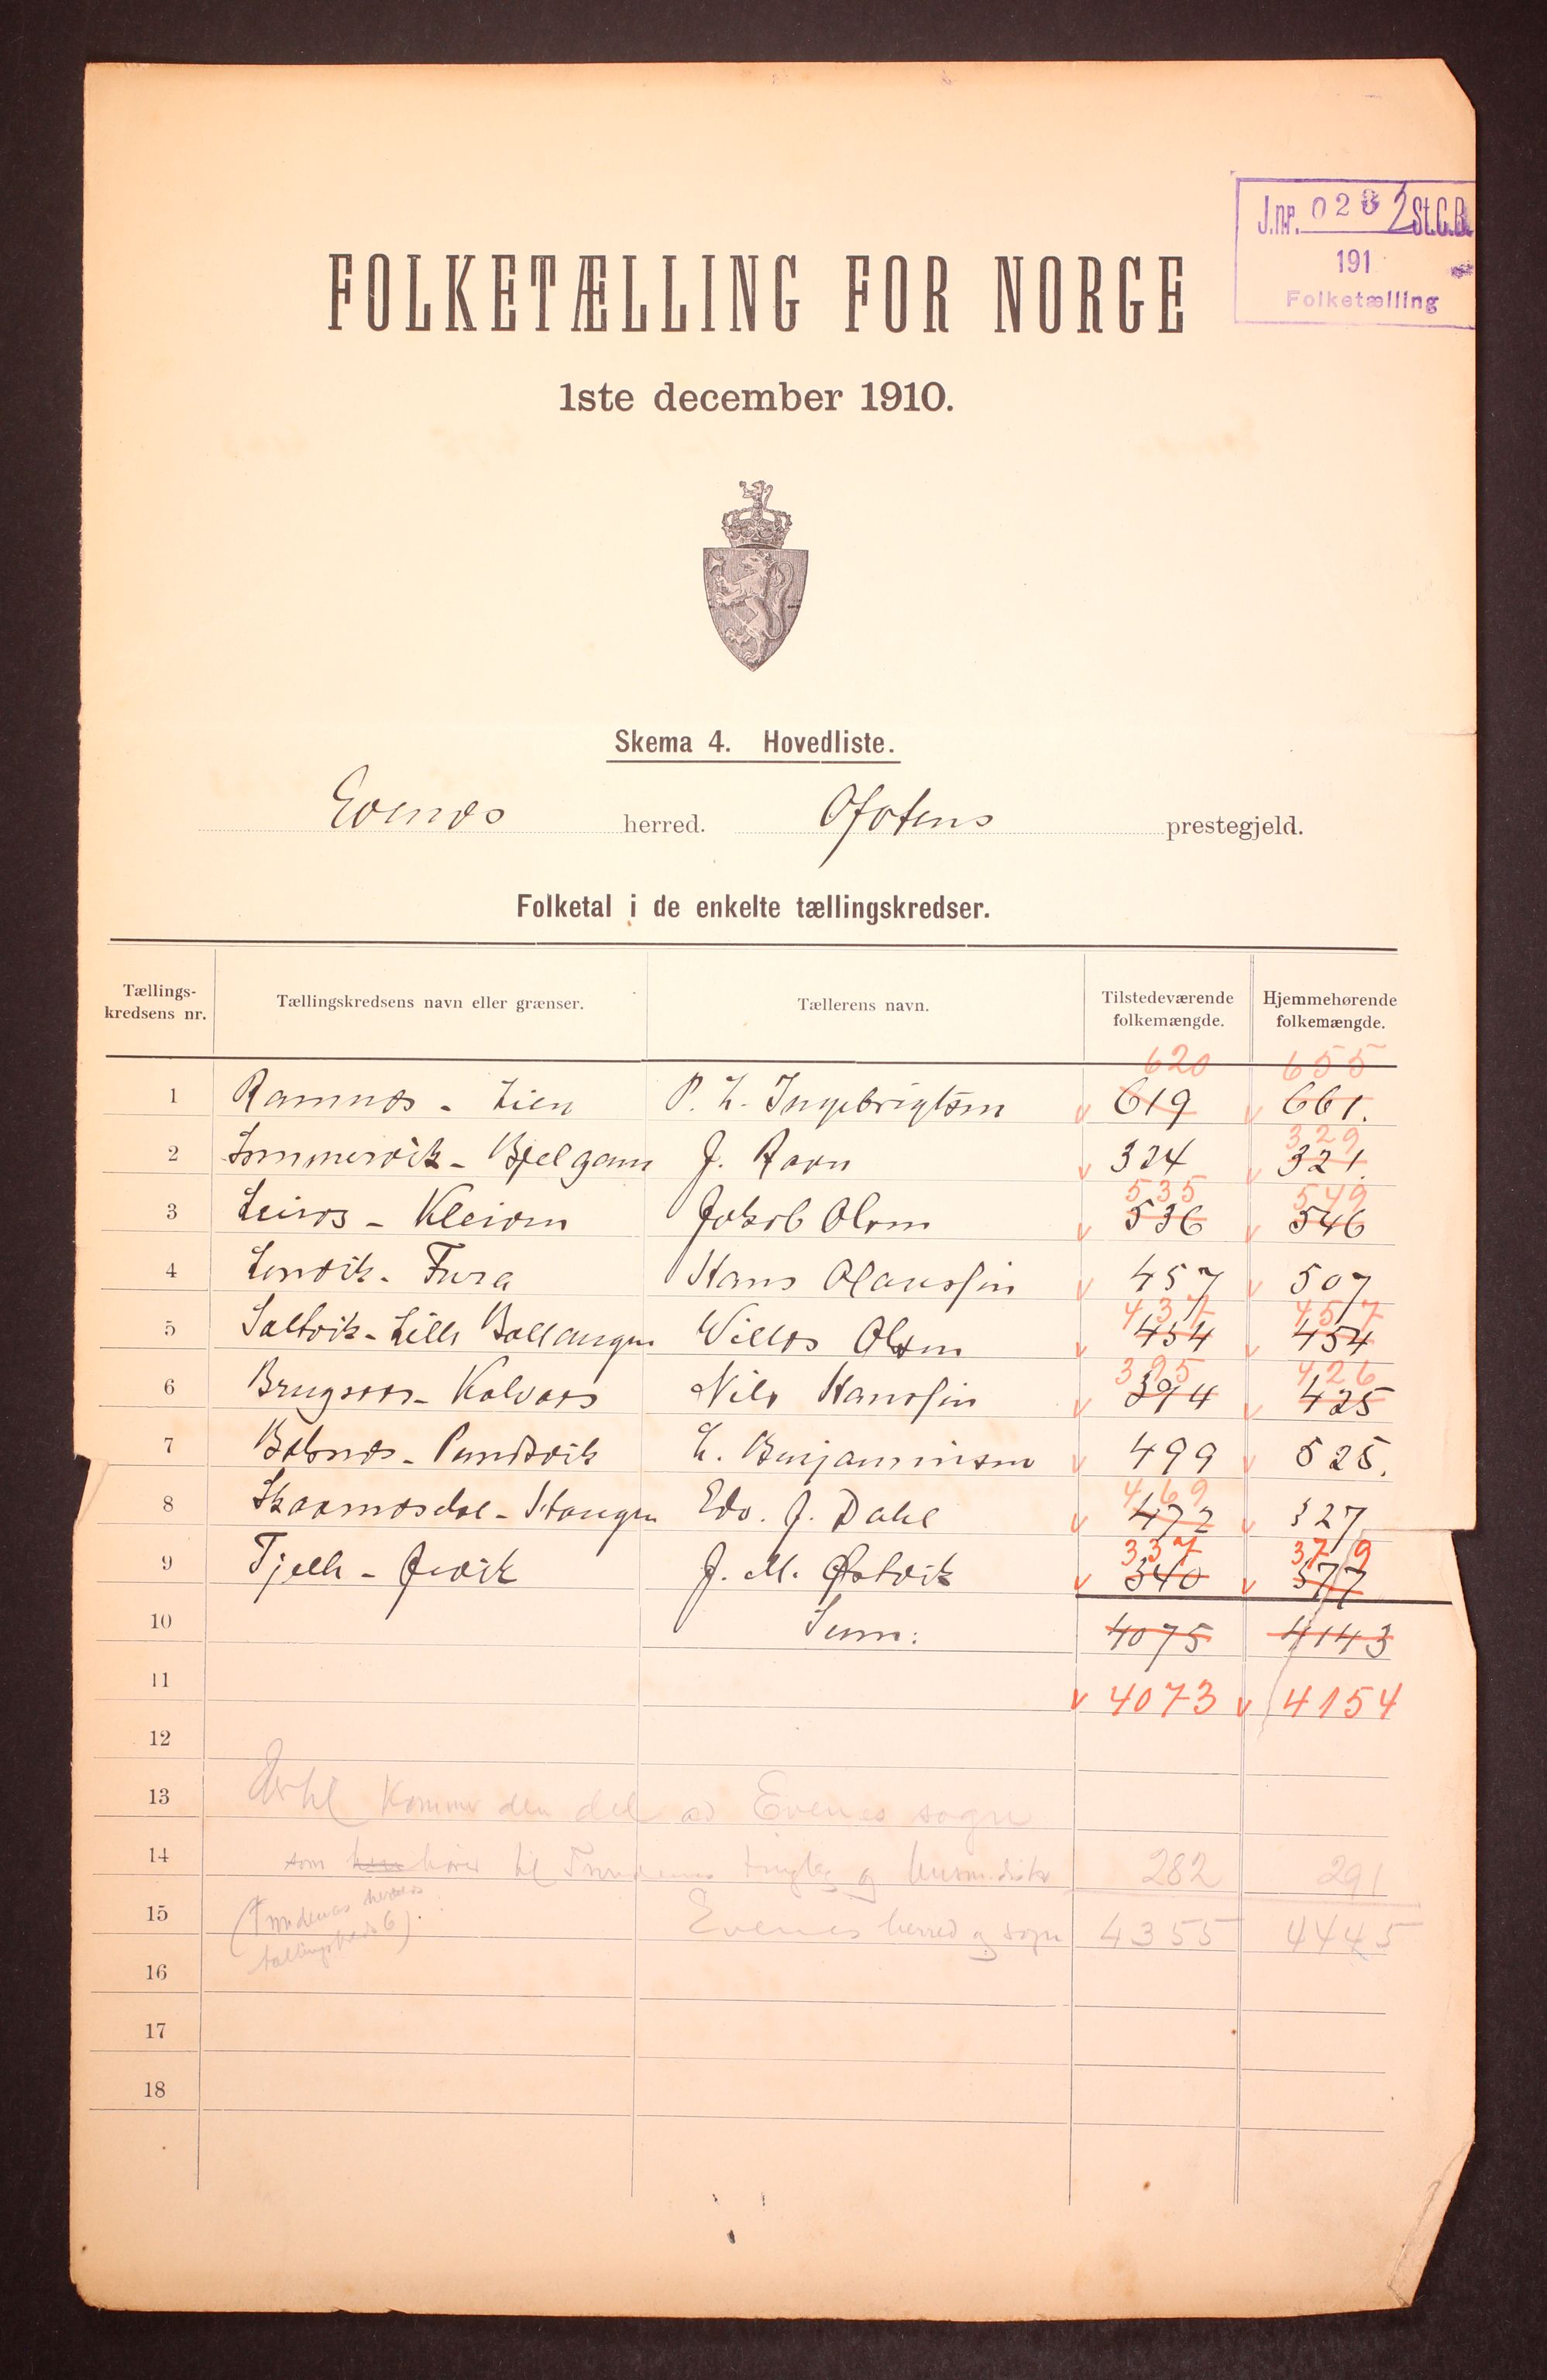 J.nr. 0232 St.C.B.
191
Folketælling
FOLKETÆLLING FOR NORGE
1ste december 1910.
Skema 4. Hovedliste.
Evenes herred. Ofotens prestegjeld.
Folketal i de enkelte tællingskredser.
Tællings-kredsens nr. Tællingskredsens navn eller grænser. Tællerens navn. Tilstedeværende folkemængde. Hjemmehørende folkemængde.
620 655
1 Ramnes - Lien P. L. Ingebrigtsen 619 661.
329
2 J. Ravn 324 321.
535 549
3 Leiros - Kleiven Jakob Olsen 536 546
4 Lenvik - Hans Olaussen 457 507
437 457
5 Saltvik - Lille Ballangen Olsen 454 454
395 426
6 Nils Hanssen 394 425
7 L. Benjaminsen 499 525.
469
8 Skarmosdal - Stangen Edv. J. Dahl 472 327
337 379
9 Tjelle - J. M. Østvik 340 377
10 Sum: 4075 4143
11 4073 4154
12
13 kommer den del av Evenes sogn
14 som hører til 282 291
15 Evenes herred og sogn 4355 4445
16
17
18